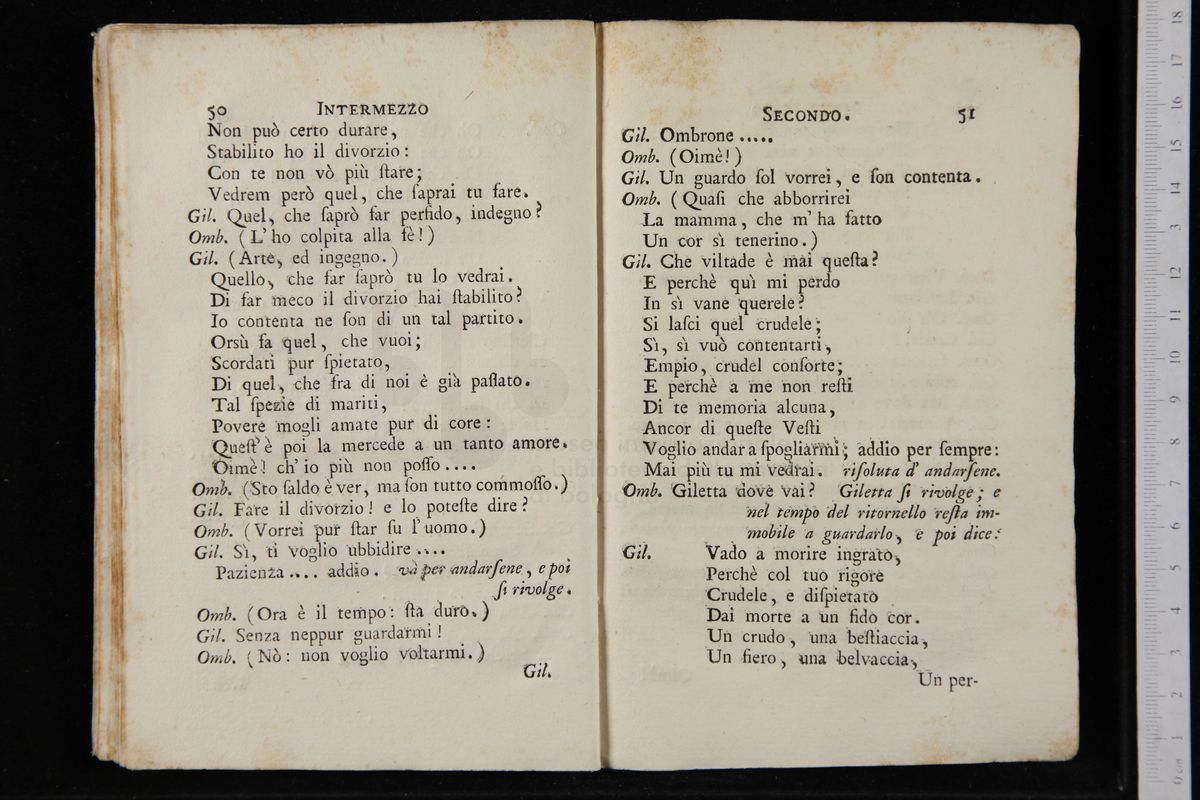 50 INTERMEZZO
Non può certo durare,
Stabilito ho il divorzio:
Con te non vò più ſtare;
Vedrem però quel, che ſaprai tu fare.
Gil. Quel, che ſaprò far perfido, indegno?
Omb. (L' ho colpita alla fè!)
Gil. (Arte, ed ingegno.)
Quello, che far ſaprò tu lo vedrai.
Di far meco il divorzio hai ſtabilito?
Io contenta ne ſon di un tal partito.
Orsù fa quel, che vuoi;
Scordati pur ſpietato,
Di quel, che fra di noi è già paſſato.
Tal ſpezie di mariti,
Povere mogli amate pur di core:
Queſt' è poi la mercede a un tanto amore.
Oimè! ch' io più non poſſo....
Omb. (Sto ſaldo è ver, ma ſon tutto commoſſo.)
Gil. Fare il divorzio! e lo poteſte dire?
Omb. (Vorrei pur ſtar ſu l' uomo.)
Gil. Sì, ti voglio ubbidire....
Pazienza.... addio. và per andarſene, e poi
ſi rivolge.
Omb. (Ora è il tempo: ſta duro.)
Gil. Senza neppur guardarmi!
Omb. (Nò: non voglio voltarmi.)
Gil.
SECONDO. 51
Gil. Ombrone.....
Omb. (Oimè!)
Gil. Un guardo ſol vorrei, e ſon contenta.
Omb. (Quaſi che abborrirei
La mamma, che m' ha fatto
Un cor sì tenerino.)
Gil. Che viltade è mai queſta?
E perchè quì mi perdo
In sì vane querele?
Si laſci quel crudele;
Sì, sì vuò contentarti,
Empio, crudel conſorte;
E perchè a me non reſti
Di te memoria alcuna,
Ancor di queſte Veſti
Voglio andar a ſpogliarmi; addio per ſempre:
Mai più tu mi vedrai. riſoluta d' andarſene.
Omb. Giletta dove vai? Giletta ſi rivolge; e
nel tempo del ritornello reſta im-
mobile a guardarlo, e poi dice:
Gil. Vado a morire ingrato,
Perchè col tuo rigore
Crudele, e diſpietato
Dai morte a un fido cor.
Un crudo, una beſtiaccia,
Un fiero, una belvaccia,
Un per-